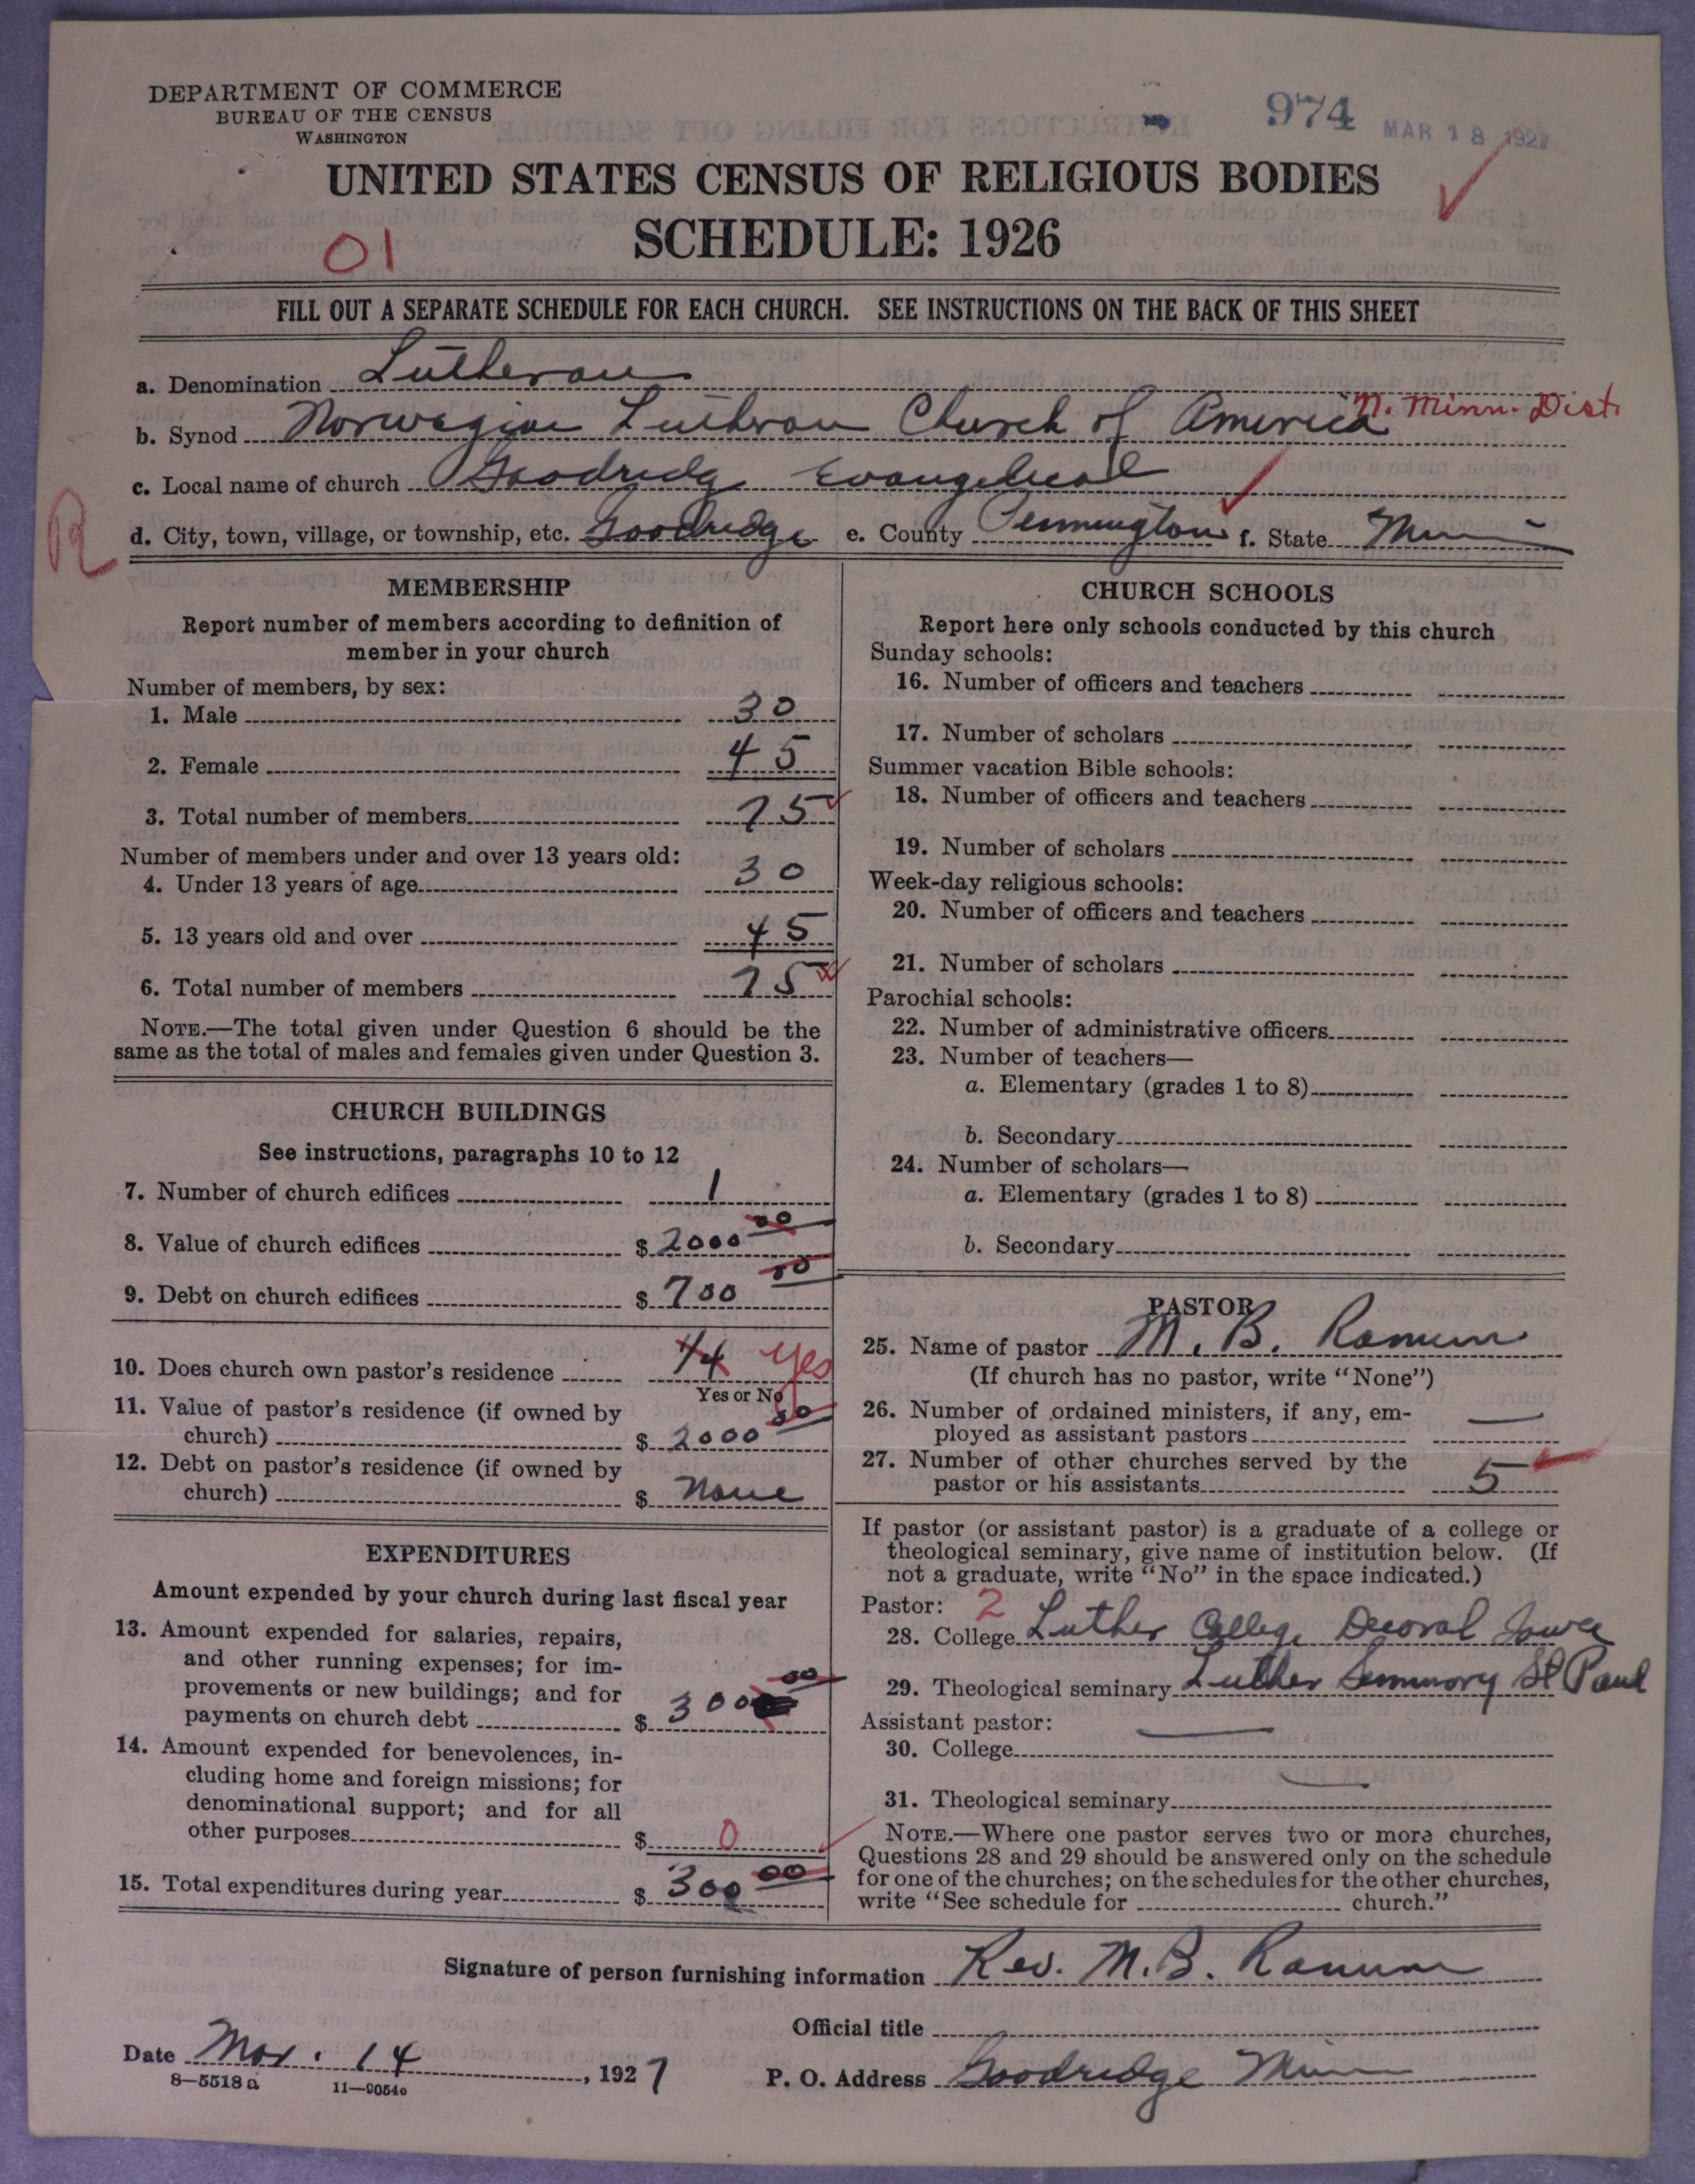 DEPARTMENT OF COMMERCE
BUREAU OF THE CENSUS
WASHINGTON
974 MAR 18 1927
UNITED STATES CENSUS OF RELIGIOUS BODIES
SCHEDULE: 1926
01
FILL OUT A SEPARATE SCHEDULE FOR EACH CHURCH. SEE INSTRUCTIONS ON THE BACK OF THIS SHEET
a. Denomination Lutheran
b. Synod Norwegian Lutheran Church of America N. Minn. Dist.
c. Local name of church Goodridg Evangelical
R
d. City, town, village, or township, etc. Goodridge e. County Pennington f. State Minn
MEMBERSHIP
Report number of members according to definition of
member in your church
Number of members, by sex:
1. Male 30
2. Female 45
3. Total number of members 75
Number of members under and over 13 years old:
4. Under 13 years of age 30
5. 13 years old and over 45
6. Total number of members 75
NOTE.—The total given under Question 6 should be the
same as the total of males and females given under Question 3.
CHURCH BUILDINGS
See instructions, paragraphs 10 to 12
7. Number of church edifices 1
8. Value of church edifices $ 2000 00
9. Debt on church edifices $ 700 00
10. Does church own pastor's residence 1/4 yes
Yes or No
11. Value of pastor's residence (if owned by
church) $ 2000 00
12. Debt on pastor's residence (if owned by
church) $ None
EXPENDITURES
Amount expended by your church during last fiscal year
13. Amount expended for salaries, repairs,
and other running expenses; for im-
provements or new buildings; and for
payments on church debt $ 300 00
14. Amount expended for benevolences, in-
cluding home and foreign missions; for
denominational support; and for all
other purposes $ 0
15. Total expenditures during year $ 300 00
CHURCH SCHOOLS
Report here only schools conducted by this church
Sunday schools:
16. Number of officers and teachers
17. Number of scholars
Summer vacation Bible schools:
18. Number of officers and teachers
19. Number of scholars
Week-day religious schools:
20. Number of officers and teachers
21. Number of scholars
Parochial schools:
22. Number of administrative officers
23. Number of teachers—
a. Elementary (grades 1 to 8)
b. Secondary
24. Number of scholars—
a. Elementary (grades 1 to 8)
b. Secondary
PASTOR
25. Name of pastor M. B. Ranum
(If church has no pastor, write "None")
26. Number of ordained ministers, if any, em-
ployed as assistant pastors —
27. Number of other churches served by the
pastor or his assistants 5
If pastor (or assistant pastor) is a graduate of a college or
theological seminary, give name of institution below. (If
not a graduate, write "No" in the space indicated.)
Pastor: 2
28. College Luther College Decorah Iowa
29. Theological seminary Luther Seminary St Paul
Assistant pastor: —
30. College
31. Theological seminary —
NOTE.—Where one pastor serves two or more churches,
Questions 28 and 29 should be answered only on the schedule
for one of the churches; on the schedules for the other churches,
write "See schedule for church."
Signature of person furnishing information Rev. M. B. Ranum
Official title
Date Mar. 14, 1927
P. O. Address Goodridge Minn
8—5518a 11—9054e